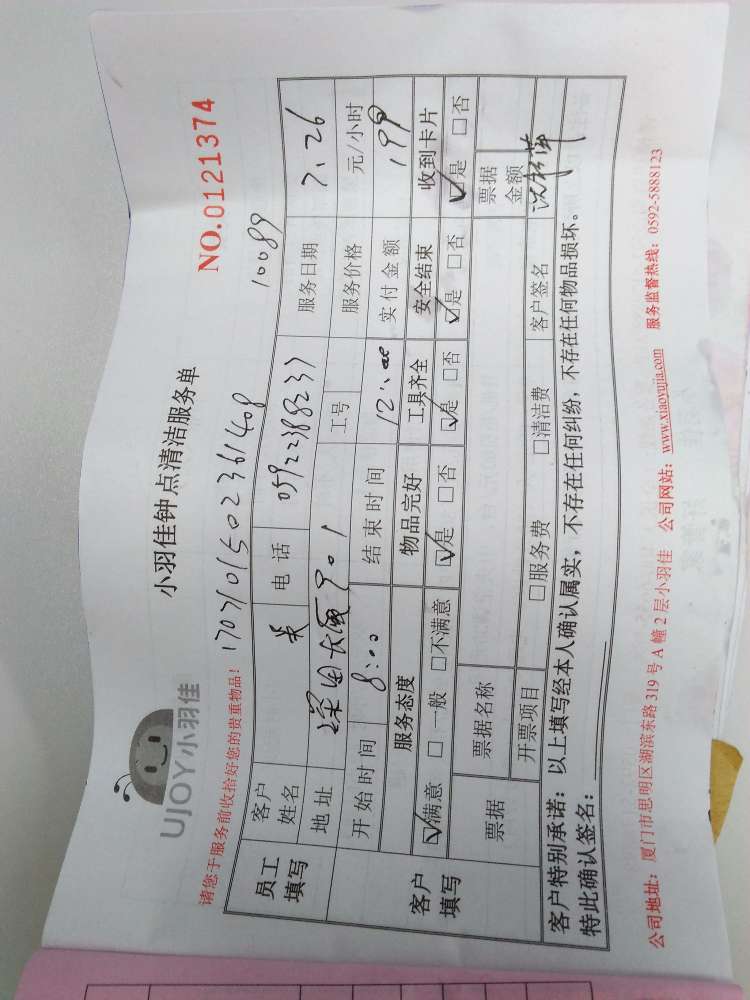 UJOY小羽佳
小羽佳钟点清洁服务单
NO.0121374
请您于服务前收拾好您的贵重物品!
10089
员工填写 客户姓名 吴 电话 服务日期 7.26
地址 901 工号 服务价格 元/小时
客户填写 开始时间 8:00 结束时间 12:00 实付金额 199
服务态度 物品完好 工具齐全 安全结束 收到卡片
☑满意 □一般 □不满意 ☑是 □否 ☑是 □否 ☑是 □否 ☑是 □否
票据 票据名称 票据金额
开票项目 □服务费 □清洁费 客户签名
客户特别承诺:以上填写经本人确认属实,不存在任何纠纷,不存在任何物品损坏。
特此确认签名:
公司地址:厦门市思明区湖滨东路319号A幢2层小羽佳 公司网站:www.xiaoyujia.com 服务监督热线:0592-5888123